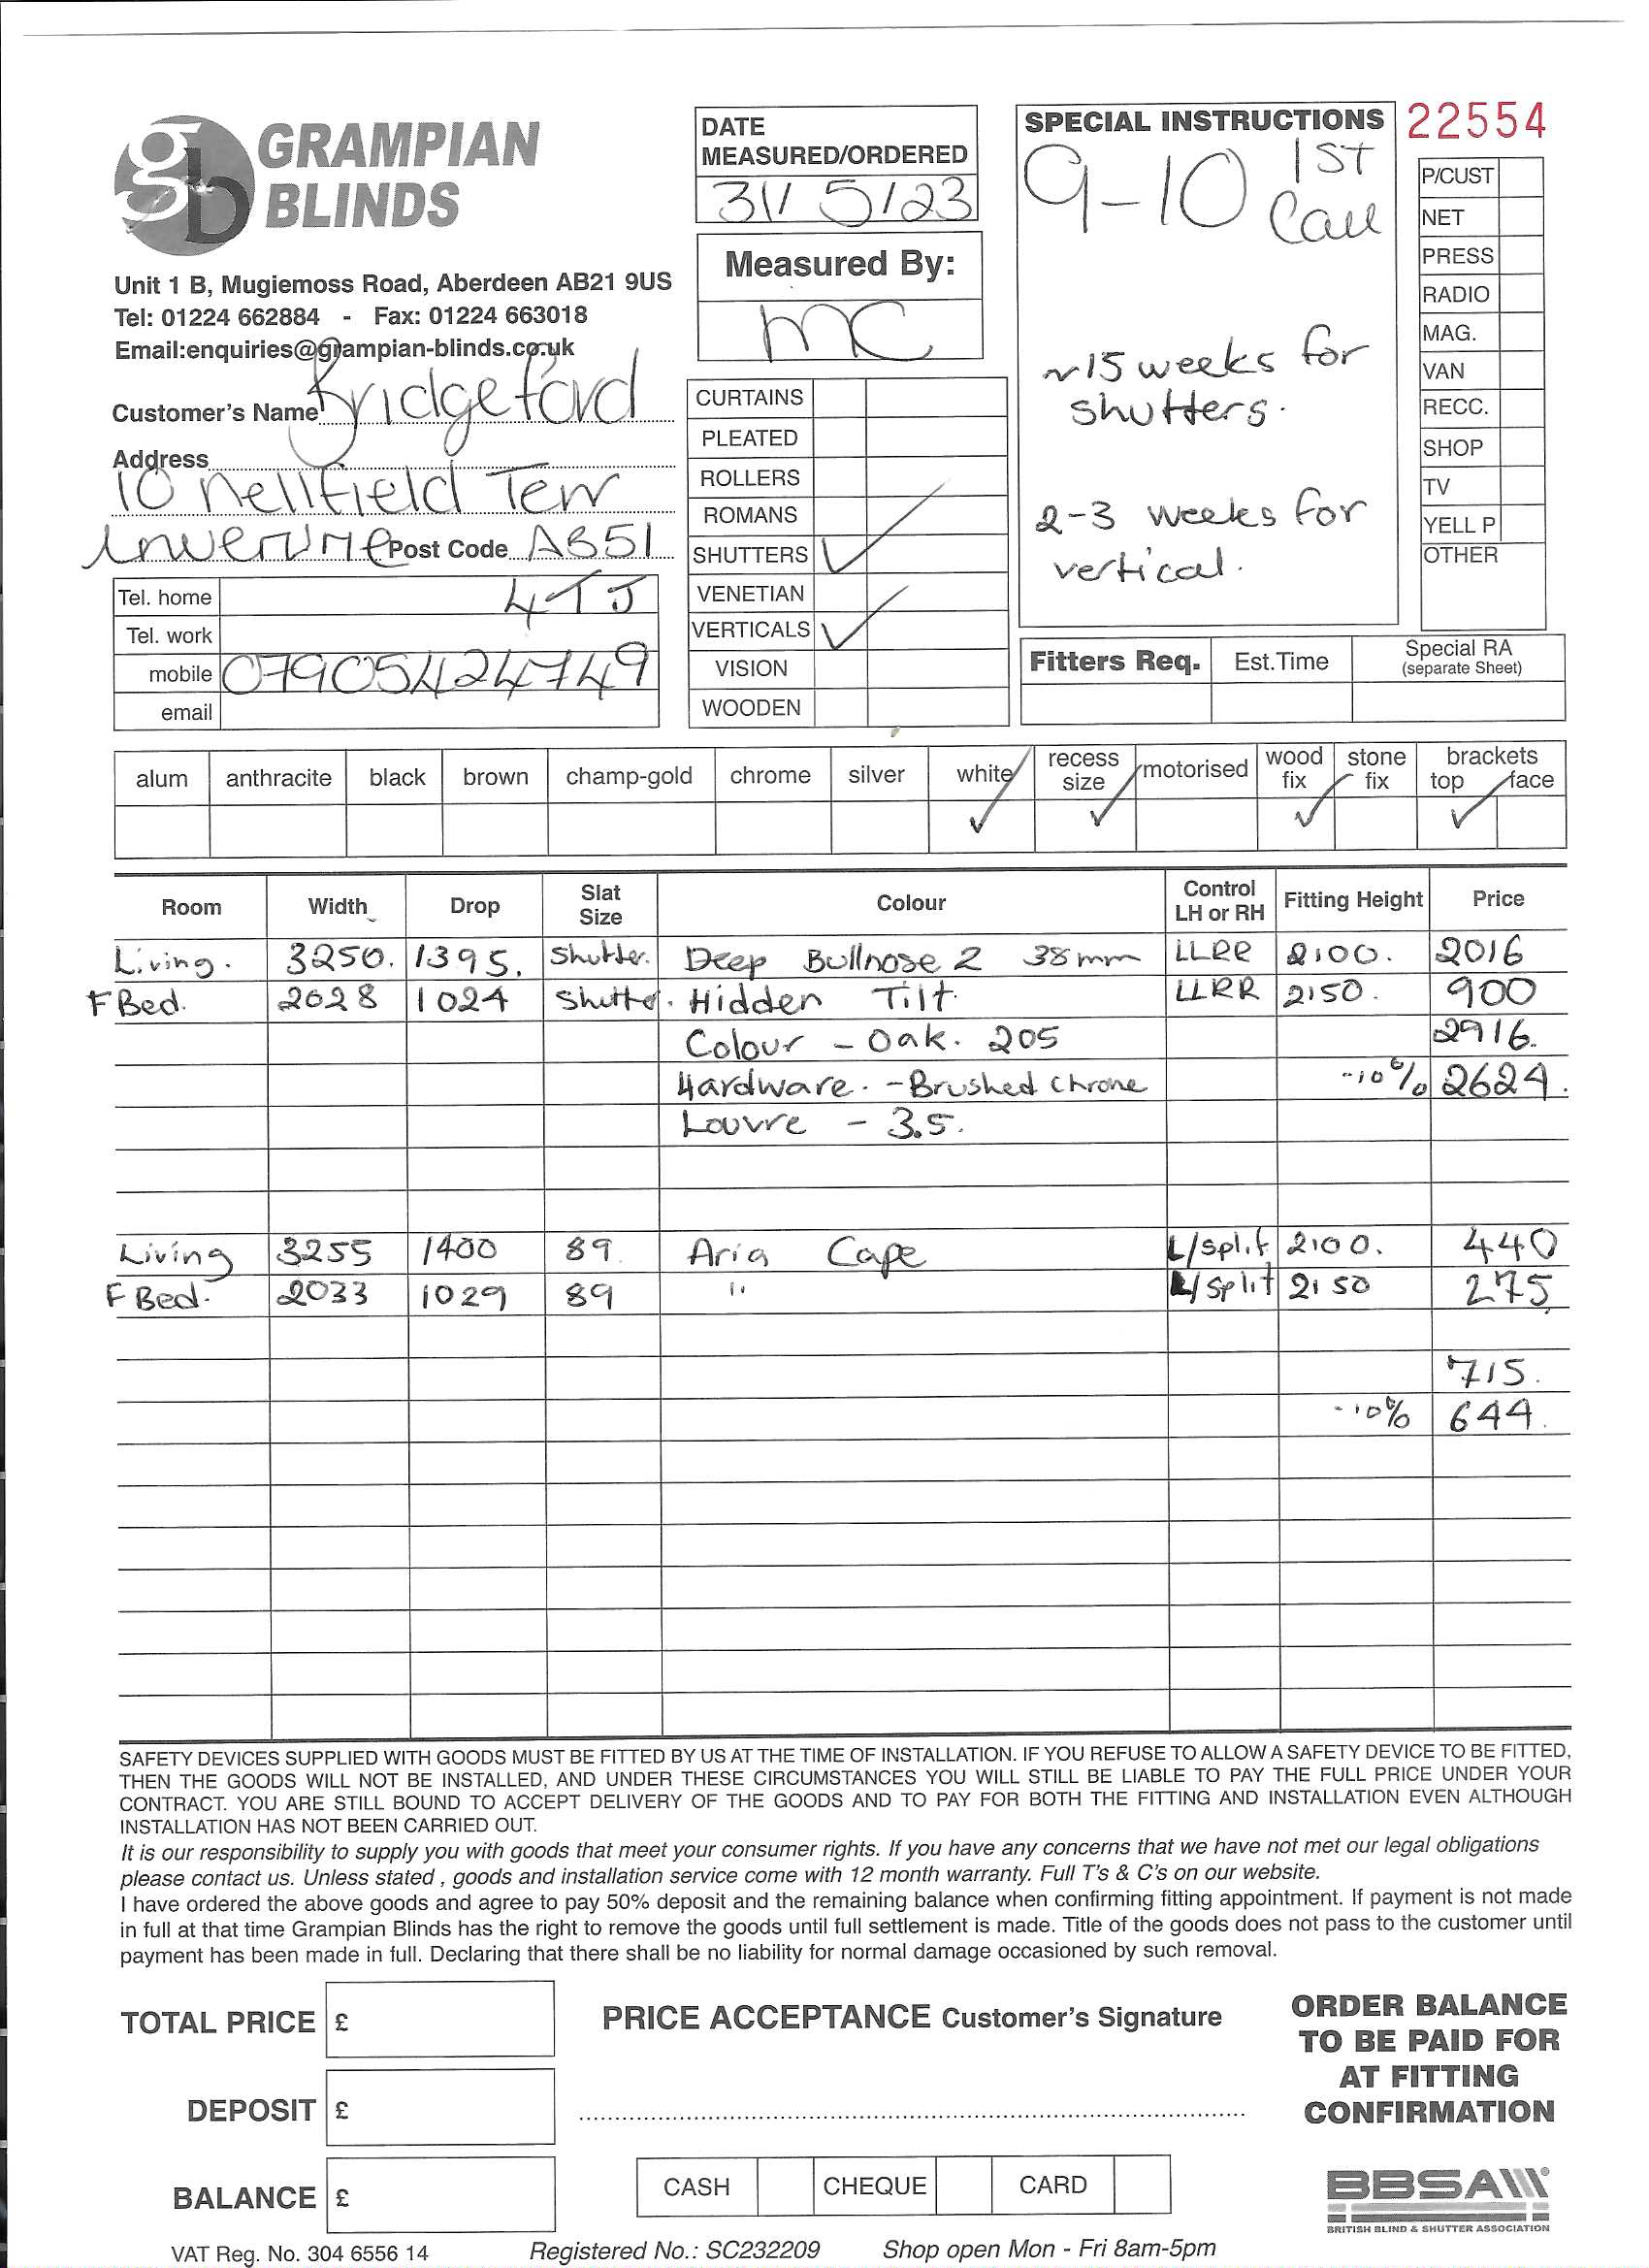 GRAMPIAN
BLINDS
Unit 1 B, Mugiemoss Road, Aberdeen AB21 9US
Tel: 01224 662884 - Fax: 01224 663018
Email:enquiries@grampian-blinds.co.uk
Customer's Name Bridgeford
Address
10 Nellfield Terr
Inverurie Post Code AB51
Tel. home 4TJ
Tel. work
mobile 07905424749
email
DATE
MEASURED/ORDERED
31/5/23
Measured By:
MC
CURTAINS
PLEATED
ROLLERS
ROMANS
SHUTTERS ✓
VENETIAN
VERTICALS ✓
VISION
WOODEN
SPECIAL INSTRUCTIONS
9-10 1ST
Call
~15 weeks for
shutters.
2-3 weeks for
vertical.
22554
P/CUST
NET
PRESS
RADIO
MAG.
VAN
RECC.
SHOP
TV
YELL P
OTHER
Fitters Req. Est.Time Special RA
(separate Sheet)
alum anthracite black brown champ-gold chrome silver white recess size motorised wood fix stone fix brackets top face
✓ ✓ ✓ ✓
Room Width Drop Slat Size Colour Control LH or RH Fitting Height Price
Living. 3250. 1395. Shutter. Deep Bullnose 2 38mm LLRR 2100. 2016
F Bed. 2028 1024 Shutter. Hidden Tilt. LLRR 2150. 900
Colour - Oak. 205 2916.
Hardware. - Brushed Chrome -10% 2624.
Louvre - 3.5.
Living 3255 1400 89 Aria Cape L/split 2100. 440
F Bed. 2033 1029 89 " L/split 2150 275
715.
-10% 644.
SAFETY DEVICES SUPPLIED WITH GOODS MUST BE FITTED BY US AT THE TIME OF INSTALLATION. IF YOU REFUSE TO ALLOW A SAFETY DEVICE TO BE FITTED,
THEN THE GOODS WILL NOT BE INSTALLED, AND UNDER THESE CIRCUMSTANCES YOU WILL STILL BE LIABLE TO PAY THE FULL PRICE UNDER YOUR
CONTRACT. YOU ARE STILL BOUND TO ACCEPT DELIVERY OF THE GOODS AND TO PAY FOR BOTH THE FITTING AND INSTALLATION EVEN ALTHOUGH
INSTALLATION HAS NOT BEEN CARRIED OUT.
It is our responsibility to supply you with goods that meet your consumer rights. If you have any concerns that we have not met our legal obligations
please contact us. Unless stated , goods and installation service come with 12 month warranty. Full T's & C's on our website.
I have ordered the above goods and agree to pay 50% deposit and the remaining balance when confirming fitting appointment. If payment is not made
in full at that time Grampian Blinds has the right to remove the goods until full settlement is made. Title of the goods does not pass to the customer until
payment has been made in full. Declaring that there shall be no liability for normal damage occasioned by such removal.
TOTAL PRICE £
DEPOSIT £
BALANCE £
PRICE ACCEPTANCE Customer's Signature
CASH CHEQUE CARD
ORDER BALANCE
TO BE PAID FOR
AT FITTING
CONFIRMATION
BBSA
BRITISH BLIND & SHUTTER ASSOCIATION
VAT Reg. No. 304 6556 14 Registered No.: SC232209 Shop open Mon - Fri 8am-5pm